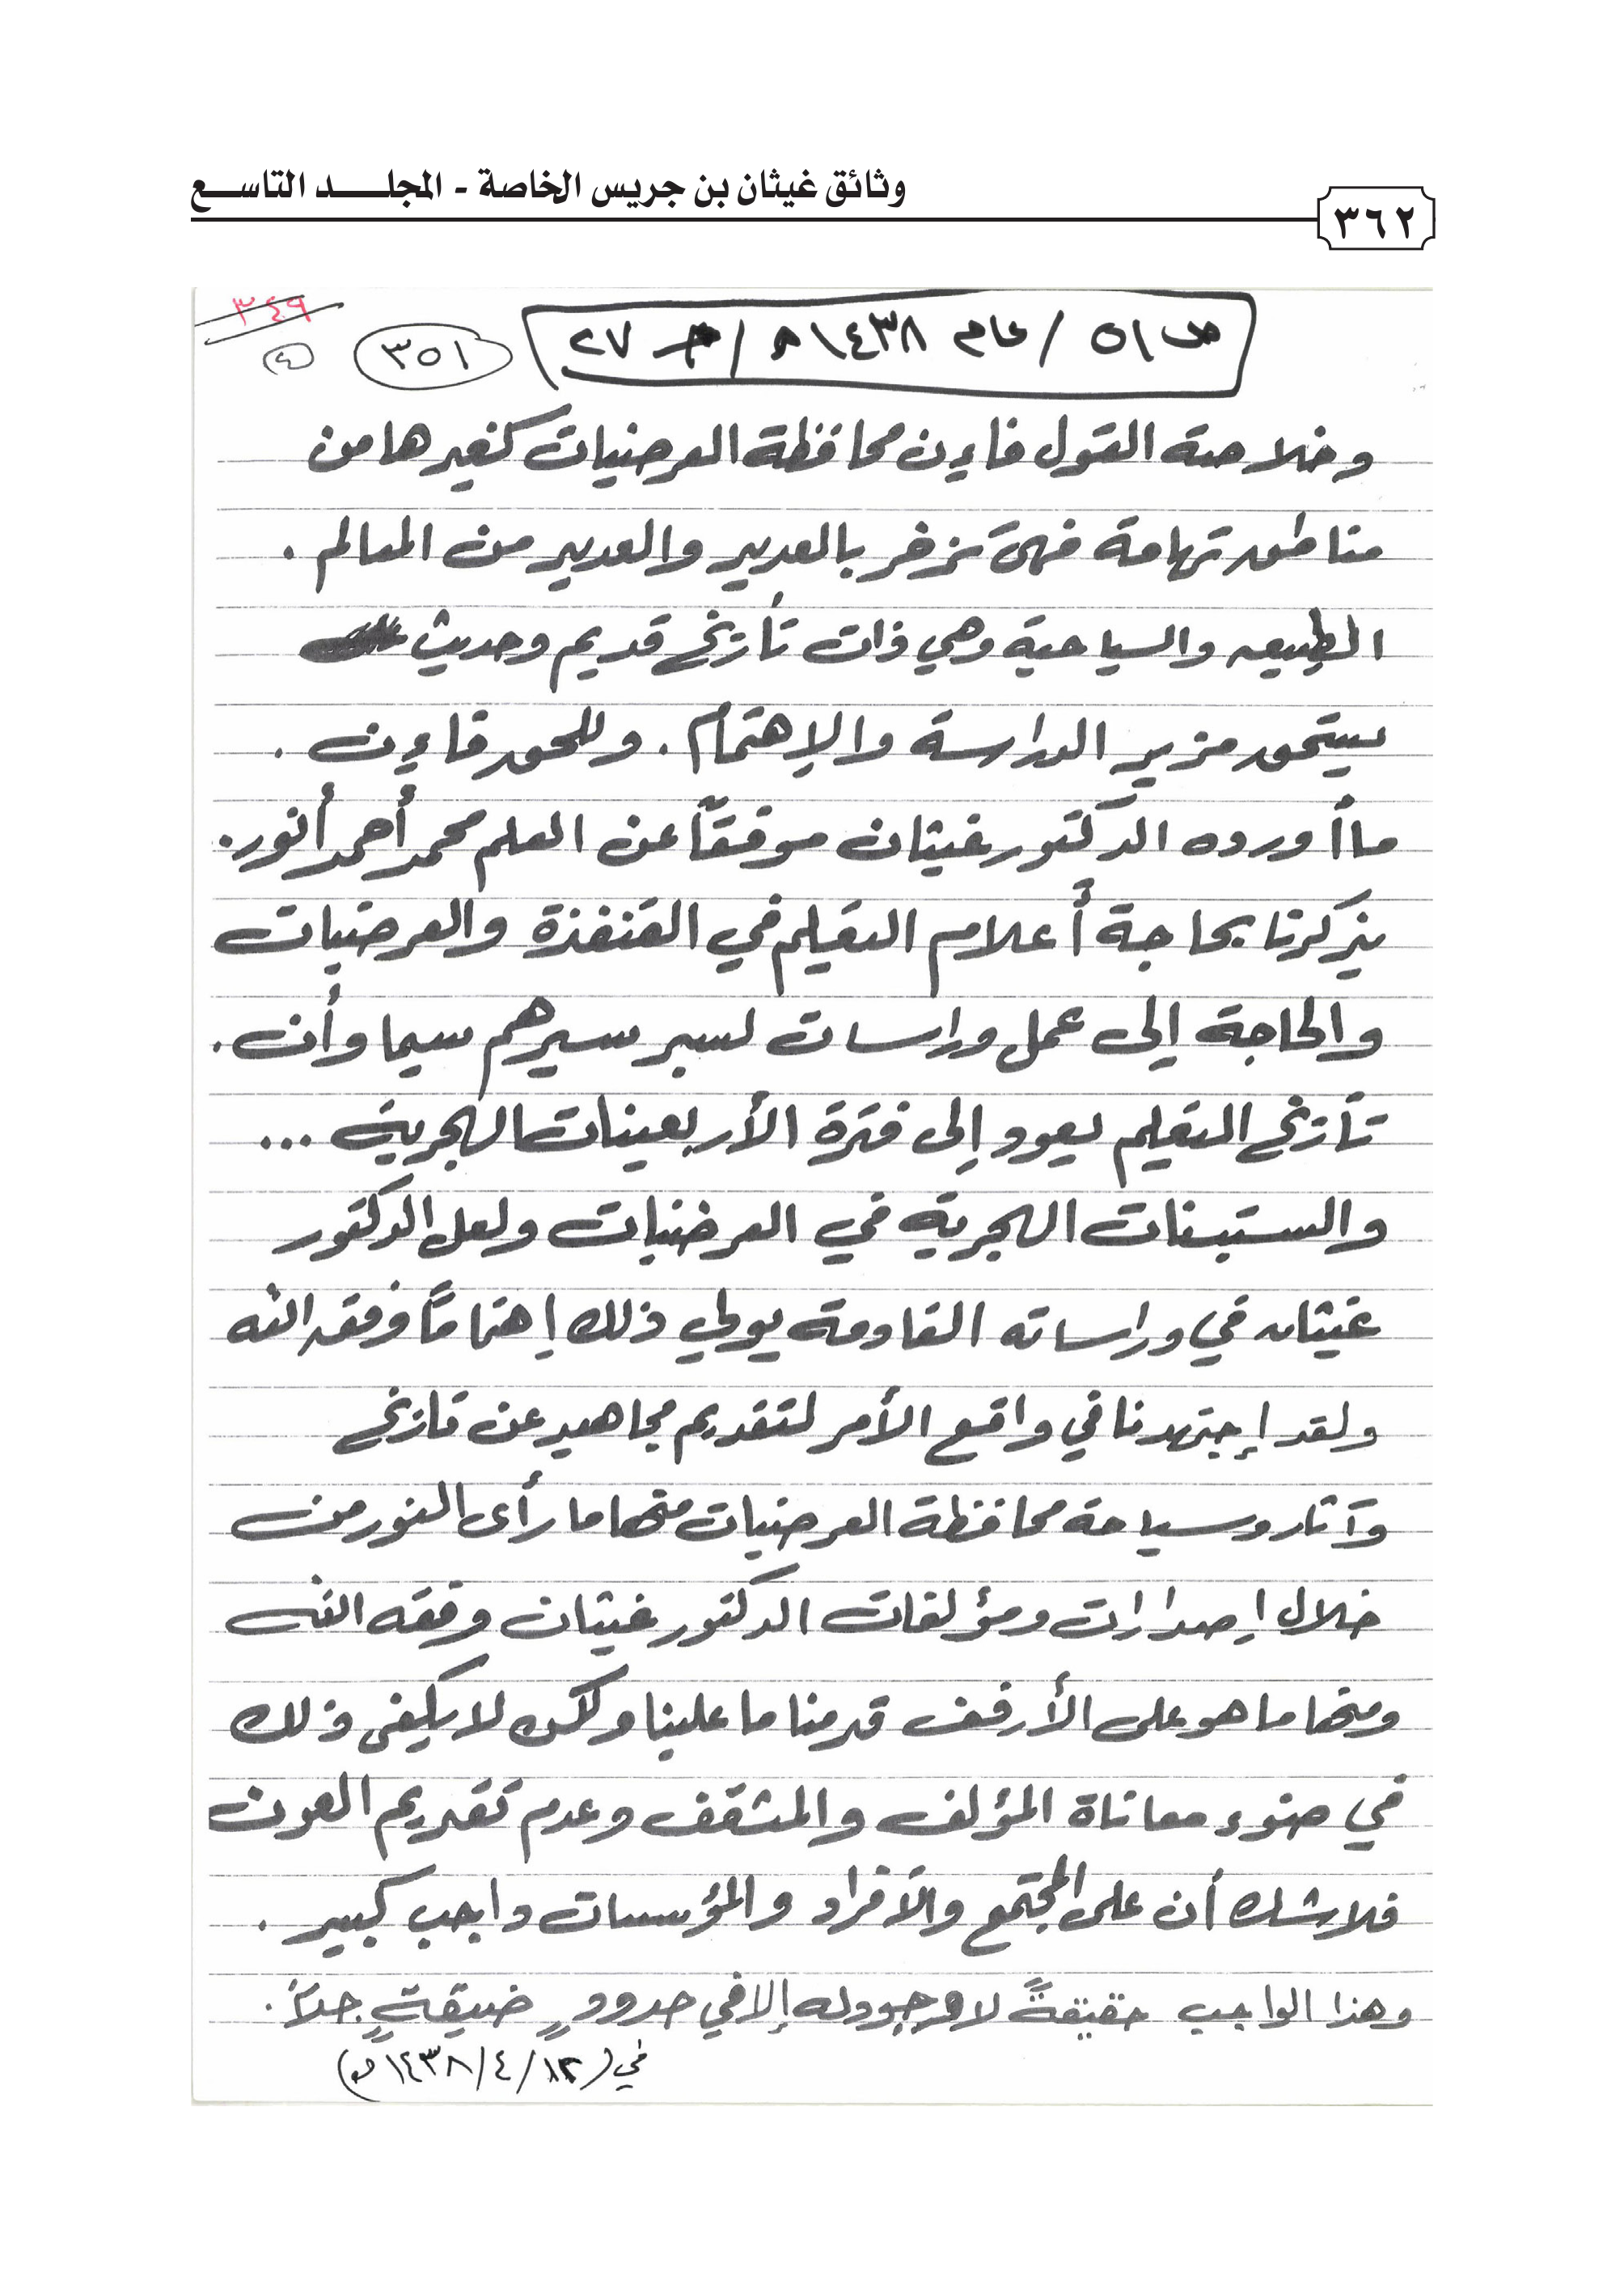 وثائق غيثان بن جريس الخاصة - المجلد التاسع
٣٦٢
٣٤٩
ص٥١ / عام ١٤٣٨هـ / جـ ٢٧
٣٥١
(٤)
وخلاصة القول فإن محافظة العرضيات كغيرها من
مناطق تهامة فهي تزخر بالعديد والعديد من المعالم .
الطبيعه والسياحية وهي ذات تأريخ قديم وحديث
يستحق مزيد الدراسة والإهتمام . وللحق فإن .
ما أورده الدكتور غيثان موفقاً عن العلم محمد أحمد أنور .
يذكرنا بحاجة أعلام التعليم في القنفذة والعرضيات
والحاجة إلى عمل دراسات لسبر سيرهم سيما وأن .
تأريخ التعليم يعود إلى فترة الأربعينات الهجرية ...
والستينات الهجرية في العرضيات ولعل الدكتور
غيثان في دراساته القادمة يولي ذلك إهتماماً وفقه الله
ولقد إجتهدنا في واقع الأمر لتقديم مجاهيد عن تاريخ
وآثار وسياحة محافظة العرضيات منها ما رأى النور من
خلال إصدارات ومؤلفات الدكتور غيثان وفقه الله
ومنها ما هو على الأرفف قدمنا ما علينا ولكن لا يكفي ذلك
في ضوء معاناة المؤلف والمثقف وعدم تقديم العون
فلا شك أن على المجتمع والأفراد والمؤسسات واجب كبير .
وهذا الواجب حقيقةً لا وجود له إلا في حدودٍ ضيقةٍ جداً .
في (١٢/٤/١٤٣٨هـ)